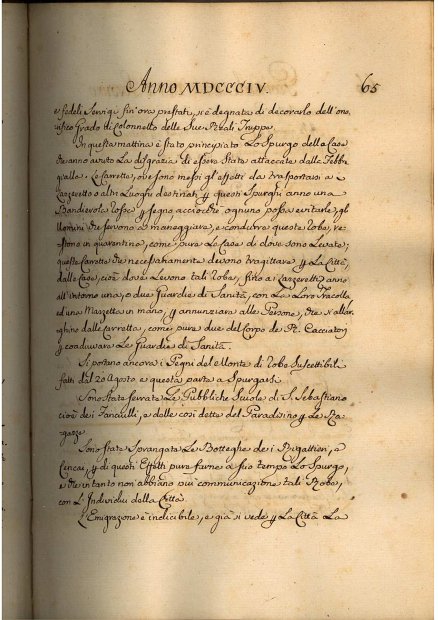 Anno MDCCCIV. 65
e fedeli Servigi fin'ora prestati, si è degnata di decorarlo dell'ono
rifico Grado di Colonnello delle Sue Reali Truppe.
In questa mattina è stato principiato Lo Spurgo delle Case
che anno avuto La disgrazia di essere state attaccate dalla Febbre
gialla. Le Carrette, ove sono messi gli effetti da trasportarsi a
Lazzeretto o altri Luoghi destinati p questi Spurghi anno una
Bandierola Rossa p segno acciocchè ognuno possa evitarle, gli
Uomini che servono a maneggiare, e condurre queste robe, re=
stono in quarantina, come pure Le Case di dove sono Levate;
queste Carrette che necessariamente devono tragittare p La Città,
dalle Case, cioè dove Levono tali robe, sino ai Lazzeretti anno
all'intorno una, o due Guardie di Sanità, con La Loro Tracolla
ed una Mazzetta in mano, p annunziare alle Persone, che si allar
ghino dalle Carrette, come pure due del Corpo de R. Cacciatori
p coadiuvare Le Guardie di Sanità.
Si portano ancora i Pegni del Monte di robe Suscettibili
fatti dal 20 Agosto a questa parte a Spurgarsi.
Sono State serrate Le Pubbliche Scuole di S. Sebastiano
cioè dei Fanciulli, e delle così dette del Paradisino p Le Ra=
gazze.
Sono State Sprangate Le Botteghe dei Rigattieri, e
Cenciai, p di questi Effetti pure farne a suo tempo Lo Spurgo,
e che intanto non abbiano più communicazione tali Robe,
con L'Individui della Città.
L'Emigrazione è indicibile, e già si vede p La Città La